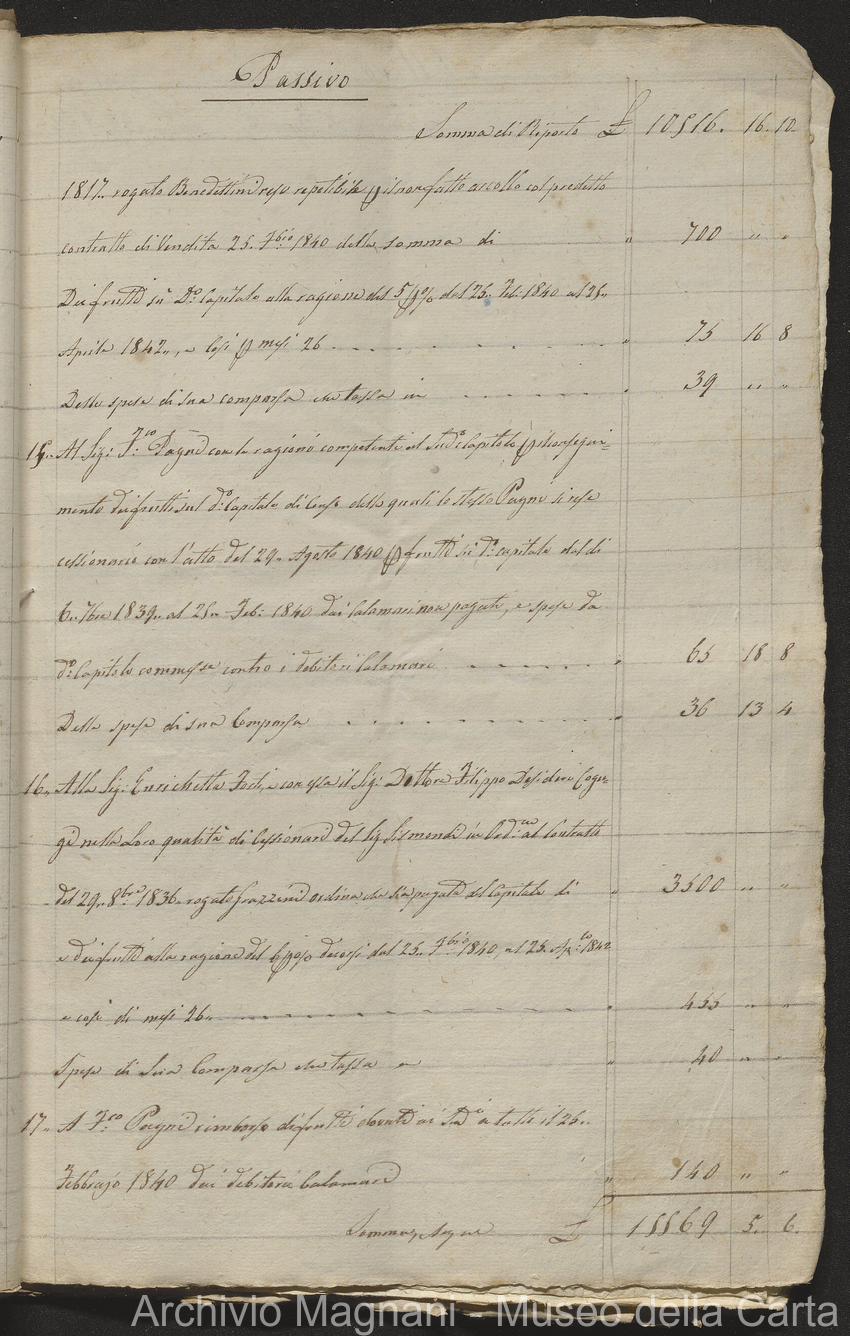 Passivo
Somma di Riporto £ 10516. 16. 10.
1817.. rogato Benedettini reso repetibile p il non fatto accollo col predetto
contratto di Vendita 25. Fbio 1840 della somma di " 700 " "
Dei frutti su Do: Capitale alla ragione del 5 p% dal 25.. Feb: 1840 al 25..
Aprile 1842.., e così p mesi 26 . . . . . . . " 75 16 8
Delle spese di sua comparsa che tassa in . . . . . " 39 " "
15.. Al Sig: F:co Pagni con le ragioni competenti al Sudo Capitolo p il consegui-
mento dei frutti sul do: Capitale di Censo delle quali lo stesso Pagni si rese
cessionario con l'atto del 29.. Agosto 1840 p frutti su do: capitale dal dì
6.. 7bre 1839.. al 25.. Feb: 1840 dai Calamari non pagati, e spese da
do: Capitolo commesse contro i debitori Calamari . . . . . " 65 18 8
Delle spese di sua Comparsa . . . . . . . " 36 13 4
16.. Alla Sig: Enrichetta Forti, e con essa il Sig: Dottore Filippo Desideri Coniu-
gi nella Loro qualità di Cessionari del Sig Sismondi in Ord:ne al Contratto
del 29.. 8bre 1836.. rogato Frazzini ordina che sia pagato del Capitale di " 3500 " "
e dei frutti alla ragione del 6 p% decorsi dal 25.. Fbrio 1840, al 25. Ap:le 1842
e così di mesi 26.. . . . . . . . . " 455 " "
Spese di Sua Comparsa che tassa in " 40 " "
17.. A F:co Pagni rimborso di frutti dovuti ai Sudi a tutto il 26..
Febbrajo 1840 dai debitori Calamari " 140 " "
Somma, e segue £ 15569 5. 6.
Archivio Magnani - Museo della Carta